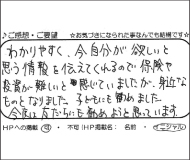 ♪ご感想・ご要望 ☆お気づきになられた事なんでも結構です☆
わかりやすく、今自分が欲しいと
思う情報を伝えてくれるので保険や
投資が難しいと感じていましたが、身近な
ものとなりました。子どもにも勧めました。
今度は友だちにも勧めようと思っています。
HPへの掲載 可・不可（HP掲載名：　名前・イニシャル）